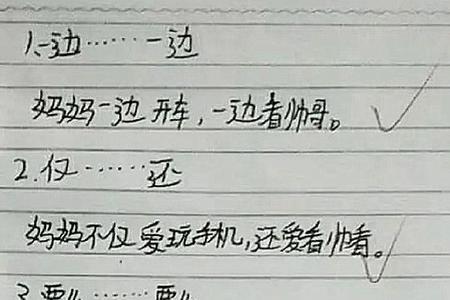 1.一边……一边
妈妈一边开车，一边看帅哥。
2.仅……还
妈妈不仅爱玩手机，还爱看帅看。
3.要……要